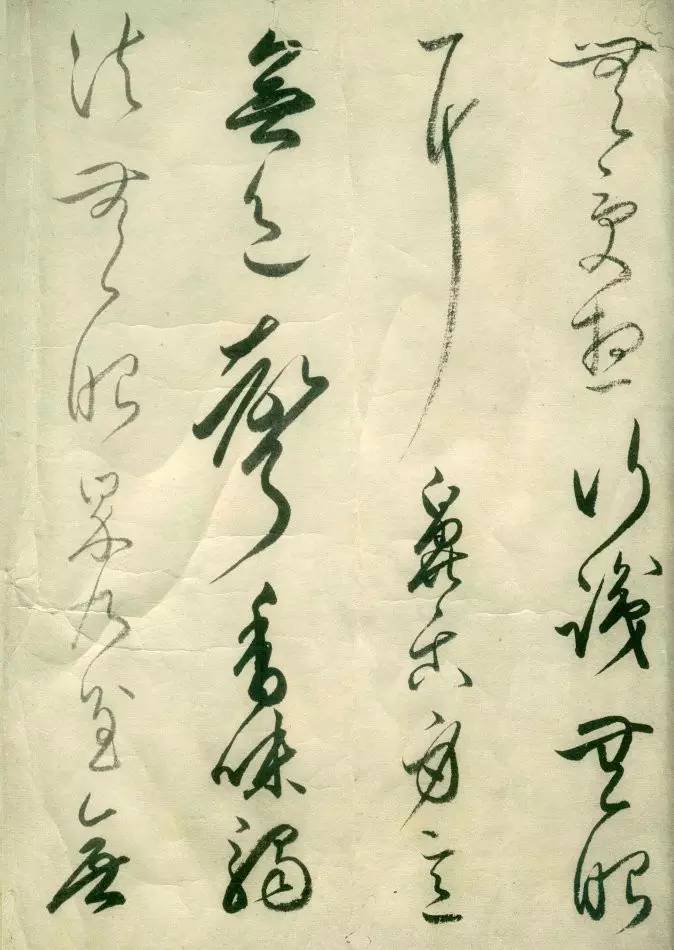 無受想行識無眼
耳鼻舌身意
無色聲香味觸
法無眼界乃至無